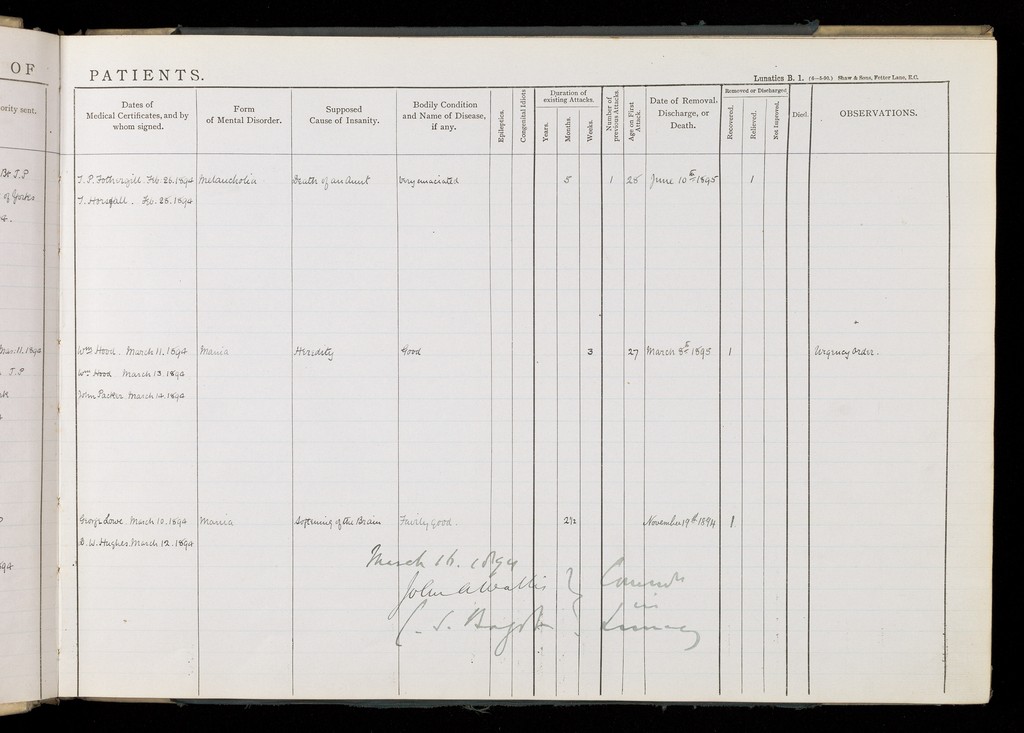 OF
PATIENTS.
Lunatics B. 1. (6—5-90.) Shaw & Sons, Fetter Lane, E.C.
ority sent.
Dates of
Medical Certificates, and by
whom signed.
Form
of Mental Disorder.
Supposed
Cause of Insanity.
Bodily Condition
and Name of Disease,
if any.
Epileptics.
Congenital Idiots
Duration of
existing Attacks.
Years.
Months.
Weeks.
Number of
previous Attacks.
Age on First
Attack.
Date of Removal,
Discharge, or
Death.
Removed or Discharged
Recovered.
Relieved.
Not Improved.
Died.
OBSERVATIONS.
J.P.
T. P. Fothergill Feb. 26. 1894 Melancholia Death of an Aunt Very emaciated 5 1 28 June 10th 1895 1
T. Horsfall. Feb. 28. 1894
Mar. 11. 1894 Wm Hood. March 11. 1894 Mania Heredity Good 3 27 March 8th 1895 1 Urgency Order.
J.P
Wm Hood March 13. 1894
John Parker March 14. 1894
George Lowe. March 10. 1894 Mania Softening of the Brain Fairly Good. 2½ November 19th 1894 1
B. W. Hughes. March 12. 1894
March 16. 1894
John A Wallis } Commrs
in
C. S. Bagot } Lunacy